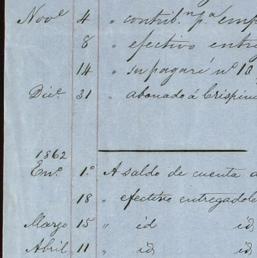 Nov.e 4 " contrib.n p.a emp
8 " efectivo entr
14 " su pagaré n.o 10
Dic.e 31 " abonado á Crispin
1862
En.o 1.o A saldo de cuenta a
18 " efectivo entregadole
Marzo 15 " id id
Abril 11 " id id